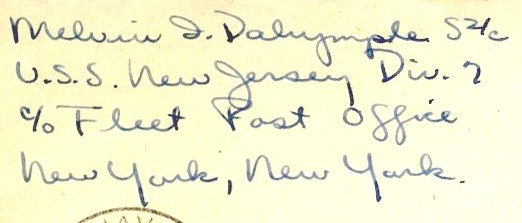 Melvin I. Dalrymple S2/c
U.S.S. New Jersey Div. 7
c/o Fleet Post Office
New York, New York.